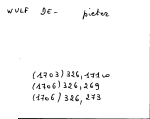 WULF DE- pieter
(1703) 326, 171
(1706) 326, 269
(1706) 326, 273